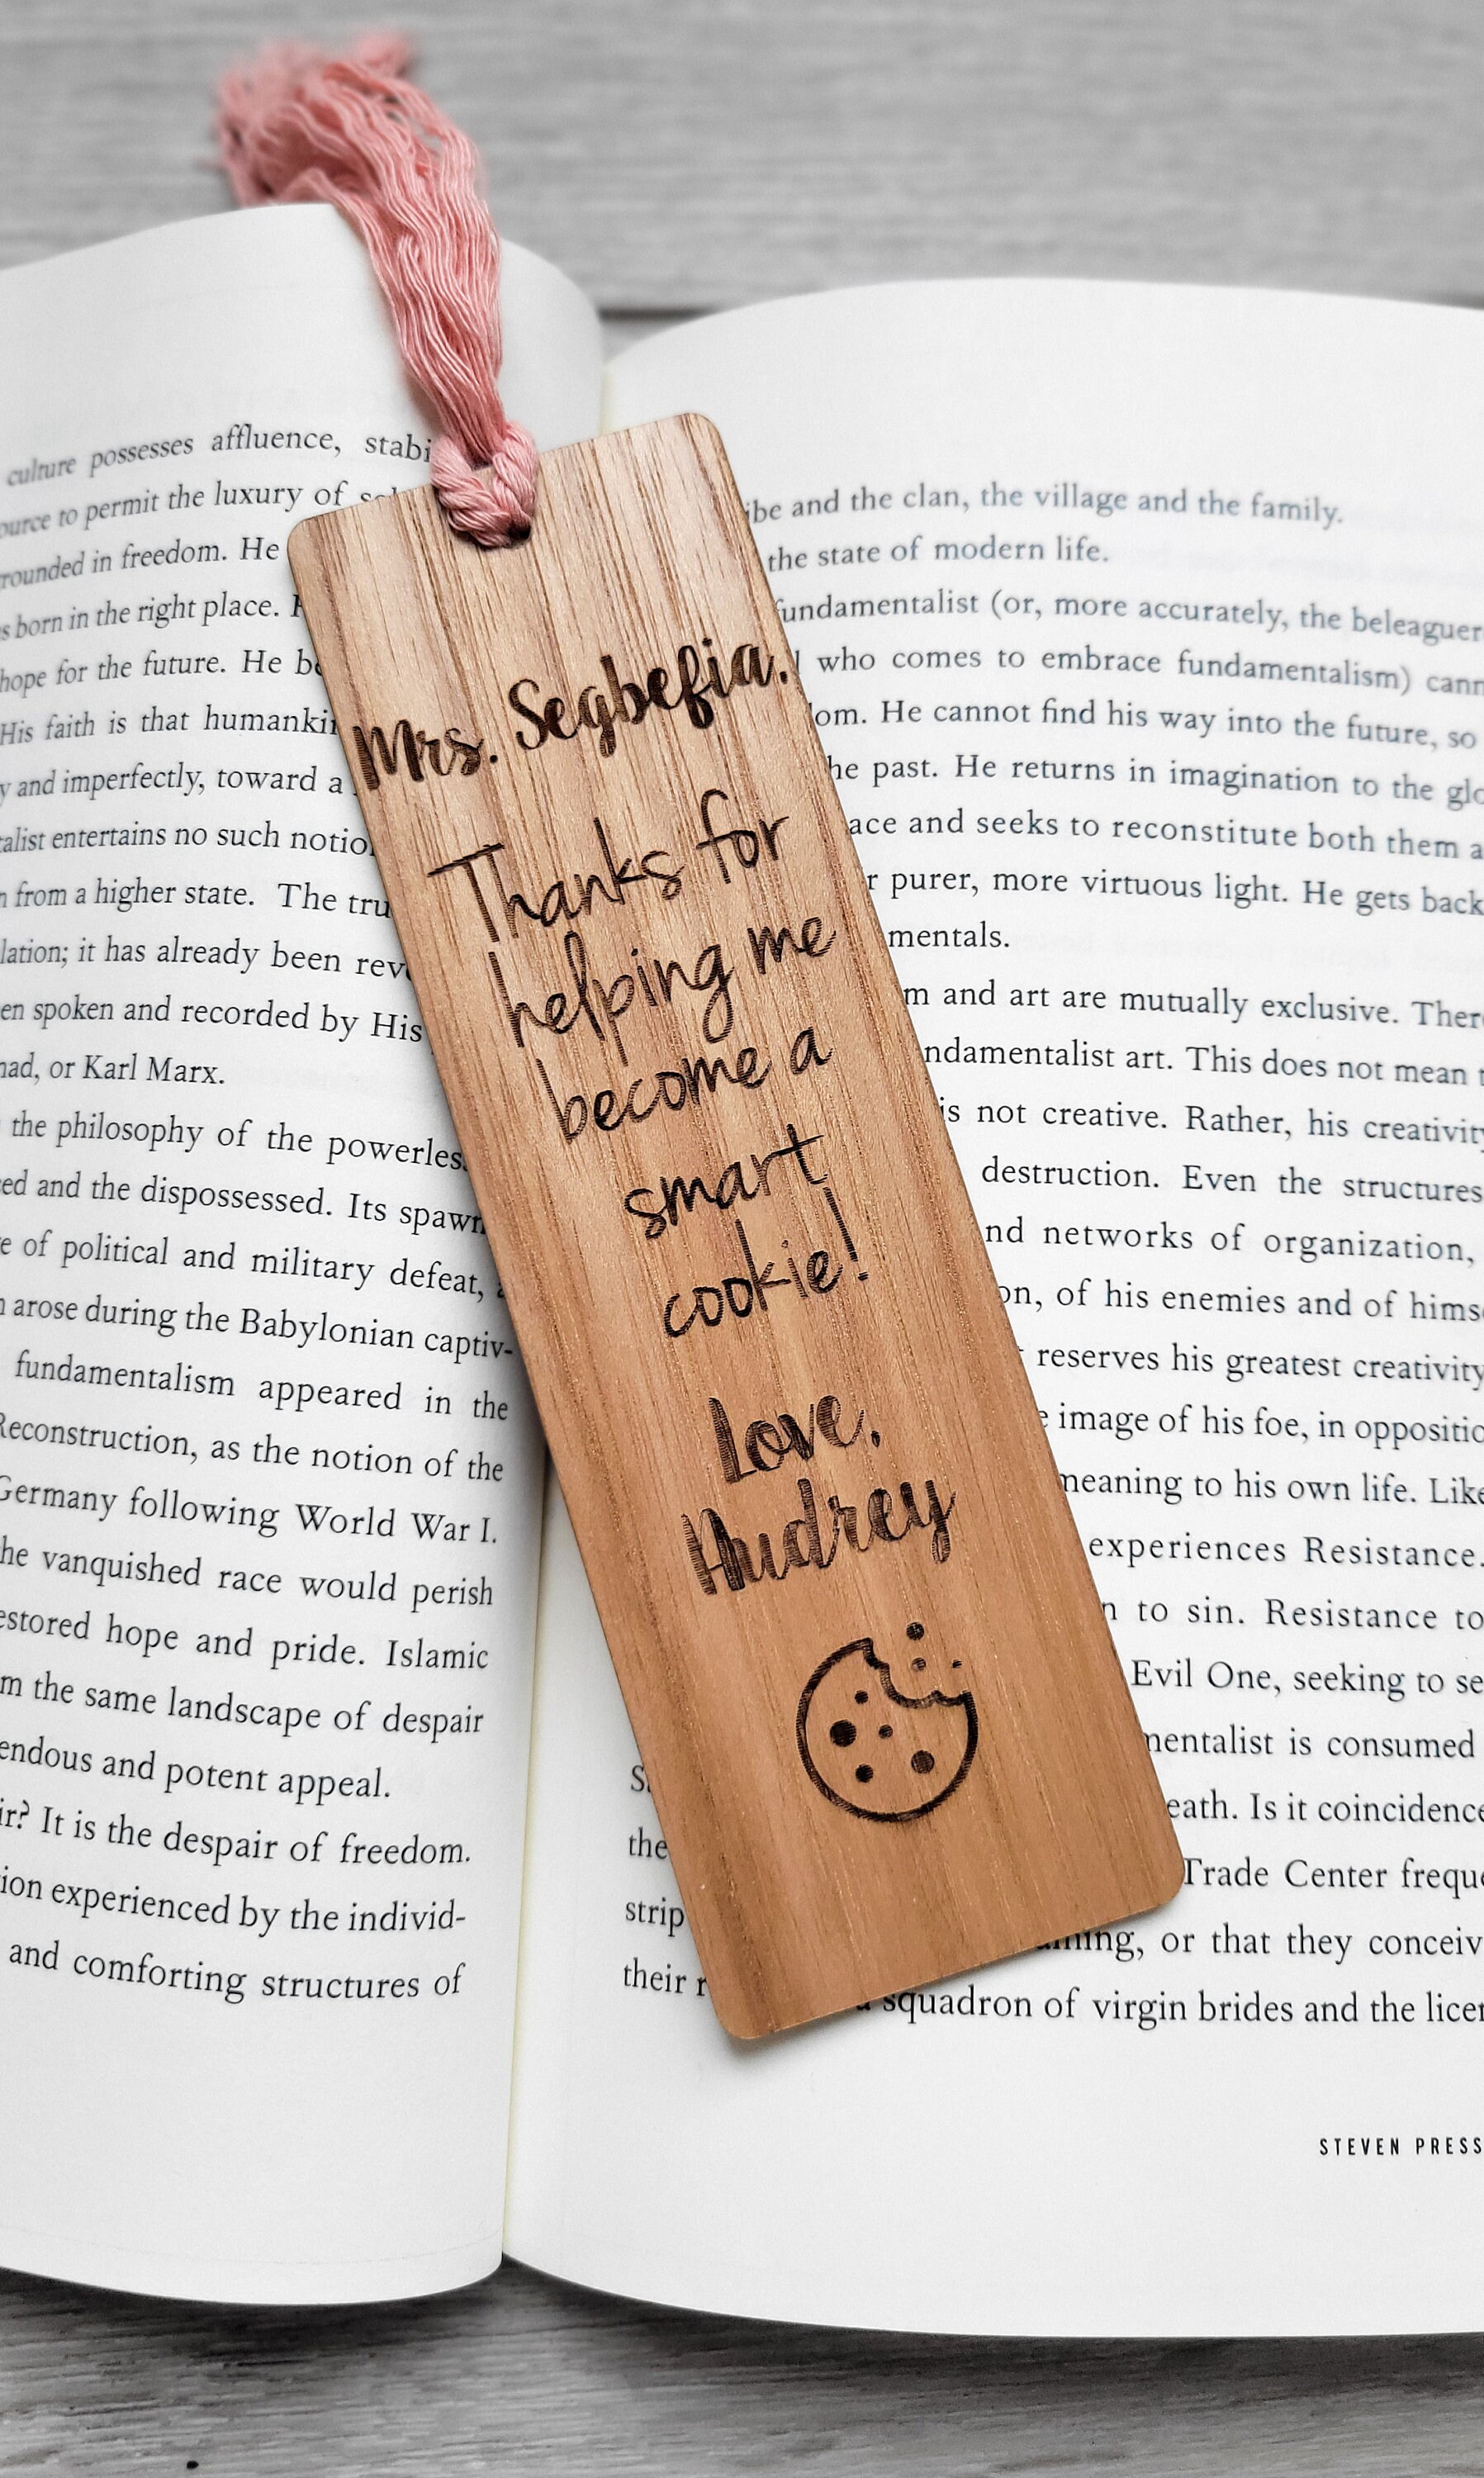 culture possesses affluence,
to permit the luxury of
in freedom. He
born in the right place.
hope for the future. He
His faith is that
and imperfectly, toward a
entertains no such
from a higher state. The
it has already been
spoken and recorded by His
or Karl Marx.
the philosophy of the
and the dispossessed. Its
of political and military defeat,
arose during the Babylonian captiv-
fundamentalism appeared in the
Reconstruction, as the notion of the
Germany following World War I.
vanquished race would perish
hope and pride. Islamic
the same landscape of despair
and potent appeal.
It is the despair of freedom.
experienced by the individ-
and comforting structures of
Mrs. Segbefia,
Thanks for
helping me
become a
smart
cookie!
Love,
Audrey
and the clan, the village and the family.
the state of modern life.
fundamentalist (or, more accurately, the
who comes to embrace fundamentalism)
He cannot find his way into the future, so
the past. He returns in imagination to the
and seeks to reconstitute both them
purer, more virtuous light. He gets back
and art are mutually exclusive.
art. This does not mean
is not creative. Rather, his creativity
destruction. Even the structures
networks of organization,
of his enemies and of
reserves his greatest creativity
image of his foe, in
meaning to his own life. Like
experiences Resistance.
to sin. Resistance to
Evil One, seeking to
is consumed
Is it coincidence
the Trade Center
or that they
their squadron of virgin brides and the
STEVEN